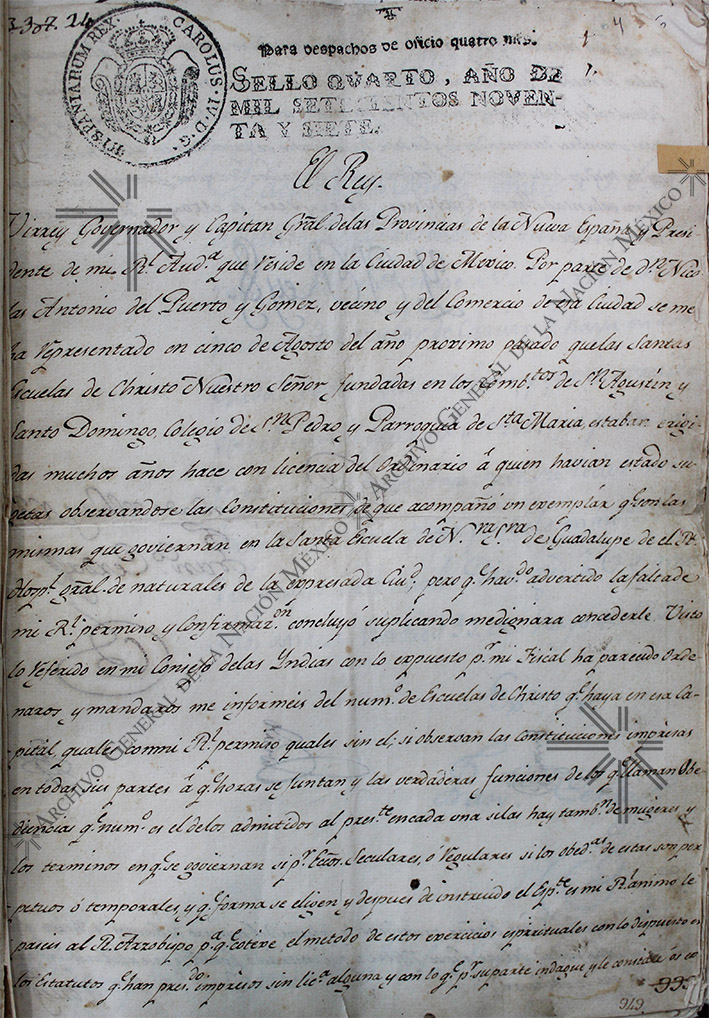 3-307. 24
HISPANIARUM REX. CAROLUS · IV · D · G ·
Para despachos de oficio quatro mrs.
SELLO QVARTO, AÑO DE
MIL SETECIENTOS NOVEN-
TA Y SIETE.
El Rey.
Virrey Governador y Capitan Grãl. de las Provincias de la Nueva España, y Presi
dente de mi Rl. Auda. que reside en la Ciudad de Mexico. Por parte de dn. Nico
las Antonio del Puerto y Gomez, vecino y del Comercio de esa Ciudad se me
ha representado en cinco de Agosto del año proximo pasado que las Santas
Escuelas de Christo Nuestro Señor, fundadas en los Combtos. de Sn. Agustin y
Santo Domingo, Colegio de Sn. Pedro y Parroquia de Sta. Maria, estaban erigi
das muchos años hace con licencia del Ordinario â quien havian estado su
getas observandose las Constituciones de que acompañó un exemplar qe. son las
mismas que goviernan en la Santa Escuela de Nra. Sra. de Guadalupe de el Rl.
Hospl. grãl. de naturales de la expresada Ciud; pero qe. havdo. advertido la falta de
mi Rl. permiso y Confirmazon. concluyó suplicando me dignara concederle. Visto
lo referido en mi Consejo de las Yndias con lo expuesto pr. mi Fiscal ha parecido orde
naros y mandaros me informéis del numo. de Escuelas de Christo qe. haya en esa Ca
pital, quales con mi Rl. permiso quales sin el; si observan las Constituciones impresas
en todas sus partes â qe. horas se juntan y las verdaderas funciones de los qe. llaman Obe
diencias qe. numo. es el de los admitidos al preste. en cada una si las hay tambn. de mugeres, y
los terminos en qe. se goviernan si pr. Ecõs. Seculares, ó regulares si los obedas. de estas son per
petuos ó temporales, y qe. forma se eligen y despues de instruido el Expte. es mi Rl. animo le
paseis al R. Arzobispo pa. qe. coteve el metodo de estos exercicios espirituales con lo dispuesto en
los Estatutos qe. han presdo. impresos sin lica. alguna y con lo qe. pr. su parte indague y le conste
949
ARCHIVO GENERAL DE LA NACIÓN MÉXICO
ARCHIVO GENERAL DE LA NACIÓN MÉXICO